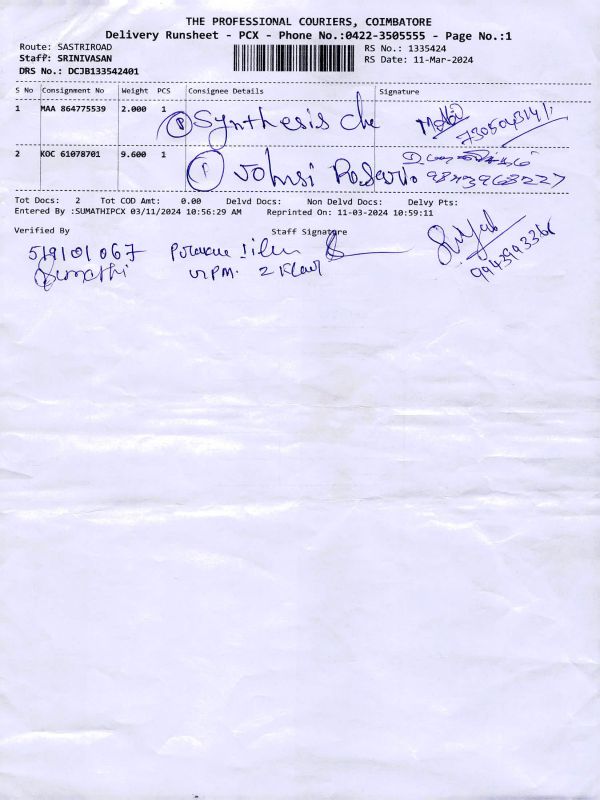 THE PROFESSIONAL COURIERS, COIMBATORE
Delivery Runsheet - PCX - Phone No.:0422-3505555 - Page No.:1
Route: SASTRIROAD RS No.: 1335424
Staff: SRINIVASAN RS Date: 11-Mar-2024
DRS No.: DCJB133542401
S No Consignment No Weight PCS Consignee Details Signature
1 MAA 864775539 2.000 1 P Synthesis che
2 KOC 61078701 9.600 1 P Johnsi Rosario 9843968227
Tot Docs: 2 Tot COD Amt: 0.00 Delvd Docs: Non Delvd Docs: Delvy Pts:
Entered By :SUMATHIPCX 03/11/2024 10:56:29 AM Reprinted On: 11-03-2024 10:59:11
Verified By Staff Signature
Sumathi